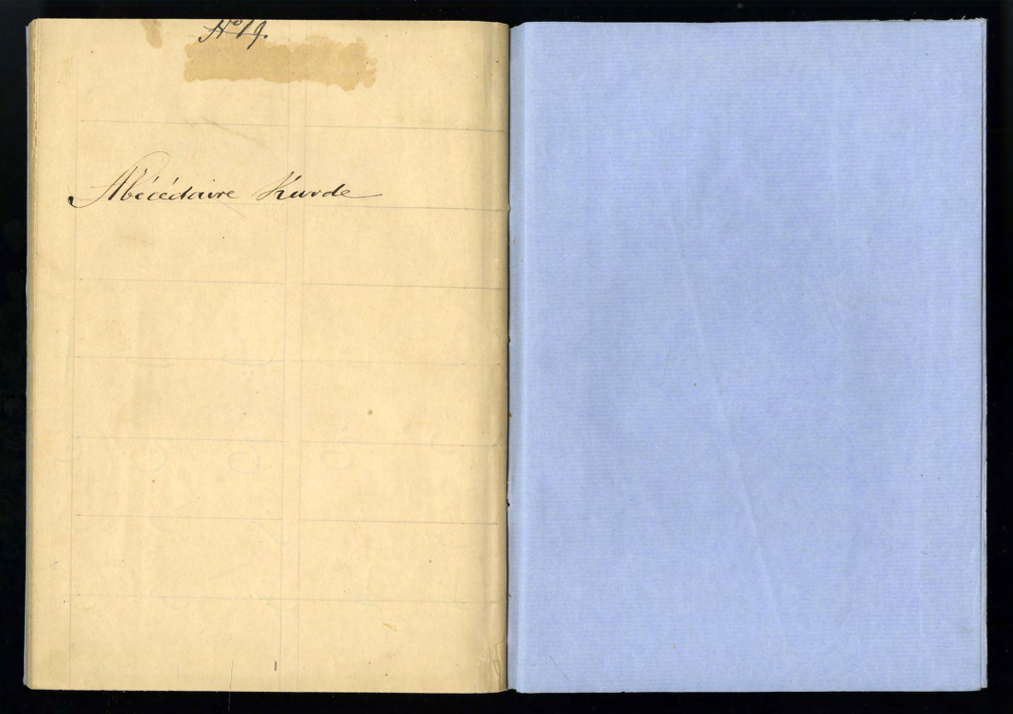 No 19.
Abécédaire Kurde